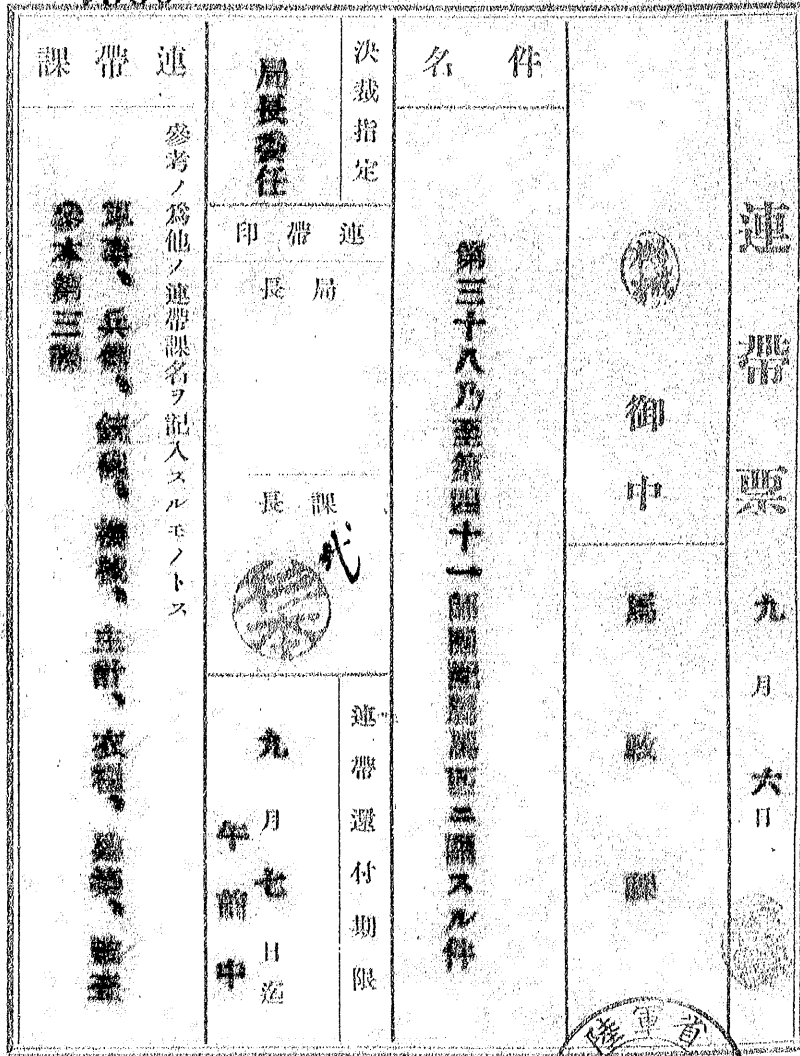 連帶票 九月六日
機械 御中
馬政課
件名
第三十八乃至第四十一師團配屬馬匹ニ關スル件
決裁指定
局長委任
連帶印
局長
課長
連帶還付期限
九月七日迄
午前中
連帶課
參考ノ爲他ノ連帶課名ヲ記入スルモノトス
軍事、兵備、機械、主計、衣糧、建築、
參本第三課
陸軍省